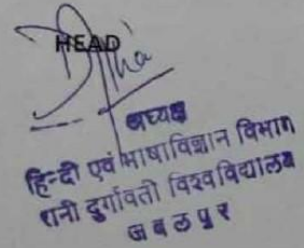 HEAD
अध्यक्ष
हिन्दी एवं भाषाविज्ञान विभाग
रानी दुर्गावती विश्वविद्यालय
जबलपुर